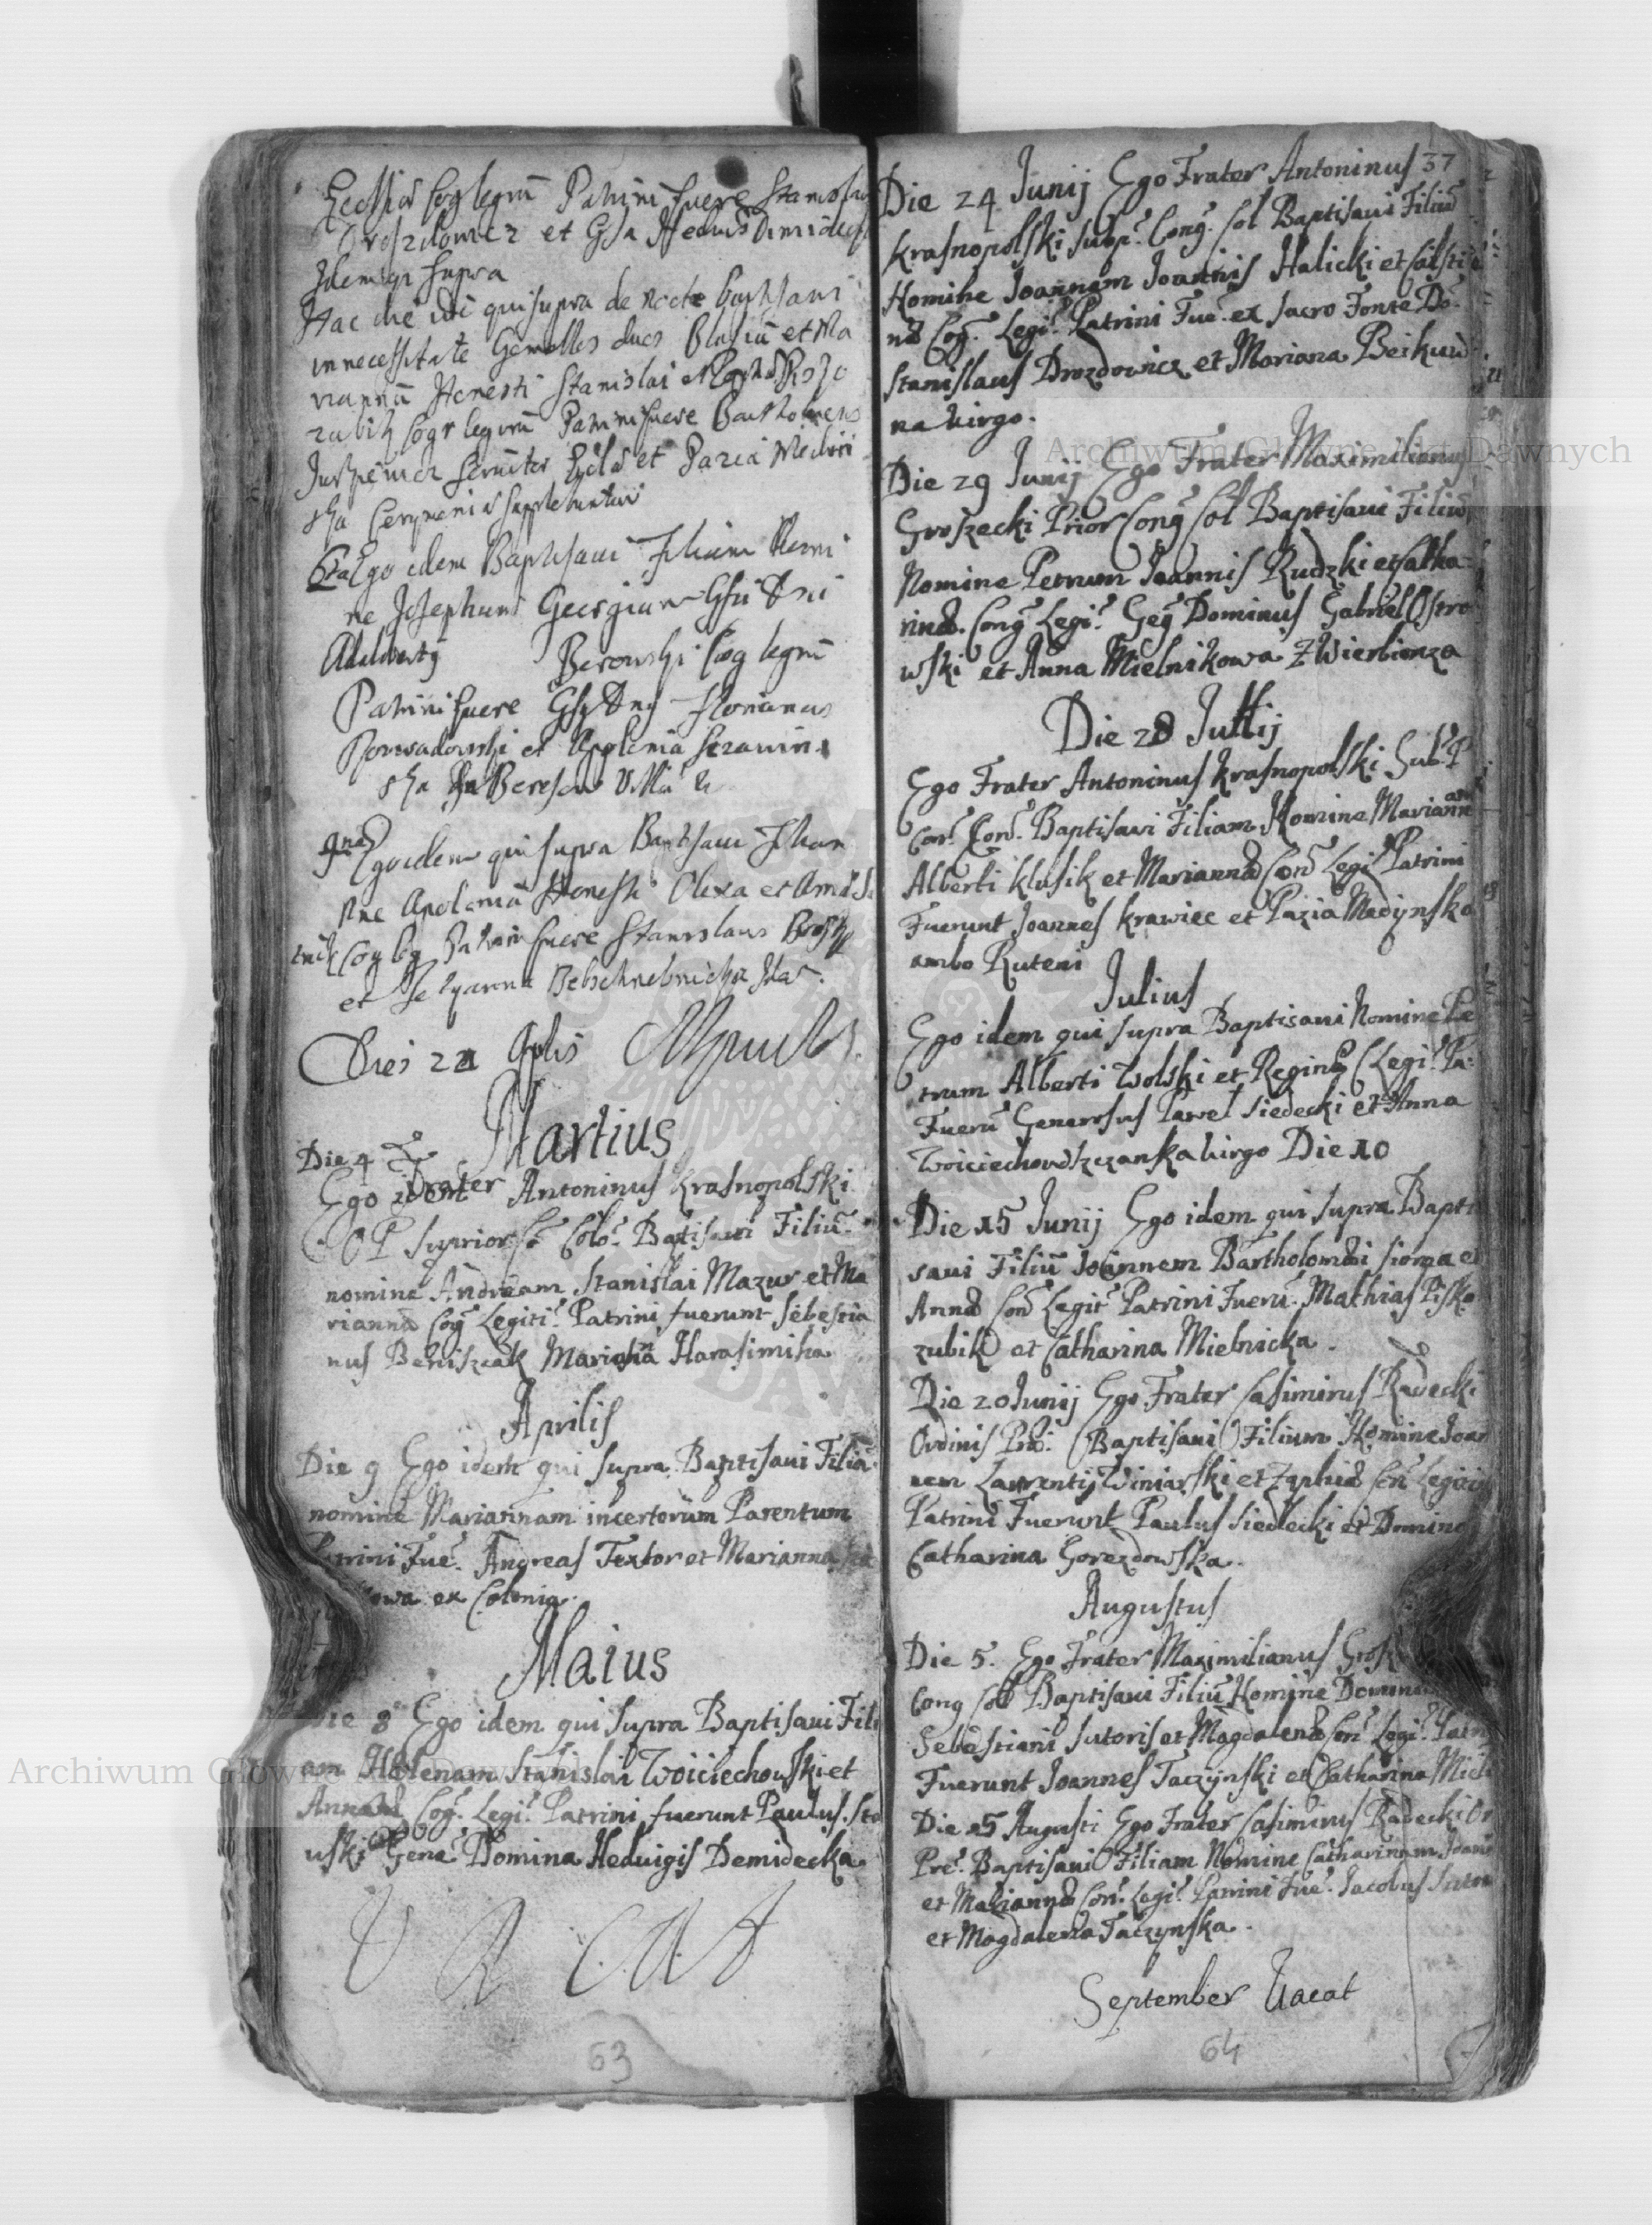 Cog legrũ Patrini fuere Stanislaus
Drozdowicz et Gsa
Idem qi supra
Hac die idē qui supra de nocte baptisavi
in necessitate Gemellos duos Blasiũ et Ma
riannã Honesti Stanislai et
zubik cogr legrũ Patrini fuere Bartholomeus
et Pazia
ska Ceremonia suppletuntur
6ta Ego idem Baptisavi Filium Nomi
ne Josephum Georgium Gsi Dni
Adalberty Berowski Cog legrũ
Patrini fuere Gsg Dng Florianus
et Apolonia
ska
9na Ego idem qui supra Baptisavi Filiam
Nne Apoloniã Honesti Olexa et
Cog leg Patrini fuere Stanislaus
et
Dies 21 Aplis
Martius
Die 4
Ego Frater Antoninus Krasnopolski
O P Suprior Cõ Colo. Baptisavi Filiũ
nomine Andream Stanislai Mazur et Ma
rianna Cog Legiti. Patrini fuerunt Sebestia
nus Beniszcak Marianna Harasimiha
Aprilis
Die 9 Ego idem qui supra Baptisavi Filiã
nomine Mariannam incertorum Parentum
Patrini Fue. Andreas Textor et Marianna
owa ex Colonia.
Maius
Die 8 Ego idem qui supra Baptisavi Fili
am Helenam Stanislai Woiciechowski et
Anna Cog. Legi. Patrini fuerunt Paulus. Sto
wski Gene Domina Heduigis Demidecka
V A C A T
63
37
Die 24 Junij Ego Frater Antoninus
Krasnopolski Subp. Cong. Col Baptisavi Filiũ
Nomine Joannem Joannis Halicki et
Cog. Legi. Patrini Fue. ex Sacro Fonte Do.
Stanislaus Drozdowicz et Mariana Beikuw
na Virgo.
Die 29 Junij Ego Frater Maximilianus
Groszecki Prior Cong Col Baptisavi Filiũ
Nomine Petrum Joannis Rudzki et Catha
rinæ. Cong Legi. Geg Dominus Gabriel Ostro
wski et Anna Mielnikowa Z Wierbionza
Die 28 Jullij
Ego Frater Antoninus Krasnopolski Sub. P
Con. Con. Baptisavi Filiam Nomine Mariannam
Alberti Klusik et Mariannæ Con Legi. Patrini
Fuerunt Joannes Krawiec et Pazia Medynska
ambo Ruteni
Julius
Ego idem qui supra Baptisavi Nomine Pe
trum Alberti Wolski et Reginæ C Legi. Pa.
Fuerũ Generosus Pawel Siedecki et Anna
Woiciechowszczanka Virgo Die 10
Die 15 Junij Ego idem qui supra Bapti
savi Filiũ Joannem Bartholomæi Siorpa et
Annæ Con Legit Patrini Fuerũ. Mathias Pisko
zubik et Catharina Mielnicka.
Die 20 Junij Ego Frater Casimirus Radecki
Ordinis Præ. Baptisavi Filium Nomine Joan
nem Laurentij Winiarski et Zophiæ Con Legi
Patrini Fuerunt Paulus Siedlecki et Domina
Catharina Gorezdowska.
Augustus
Die 5. Ego Frater Maximilianus Grosz
Cong Col Baptisavi Filiũ Nomine
Sebestiani Sutoris et Magdalenæ Con. Legi. Patri
Fuerunt Joannes Taczynski et Catharina Miel
Die 15 Augusti Ego Frater Casimirus Radecki Or
Præ. Baptisavi Filiam Nomine Catharinam Joannis
et Mariannæ Con. Legi. Patrini Fue. Jacobus Sutor
et Magdalena Taczynska.
September Vacat
64
Archiwum Główne Akt Dawnych
Archiwum Główne Akt Dawnych